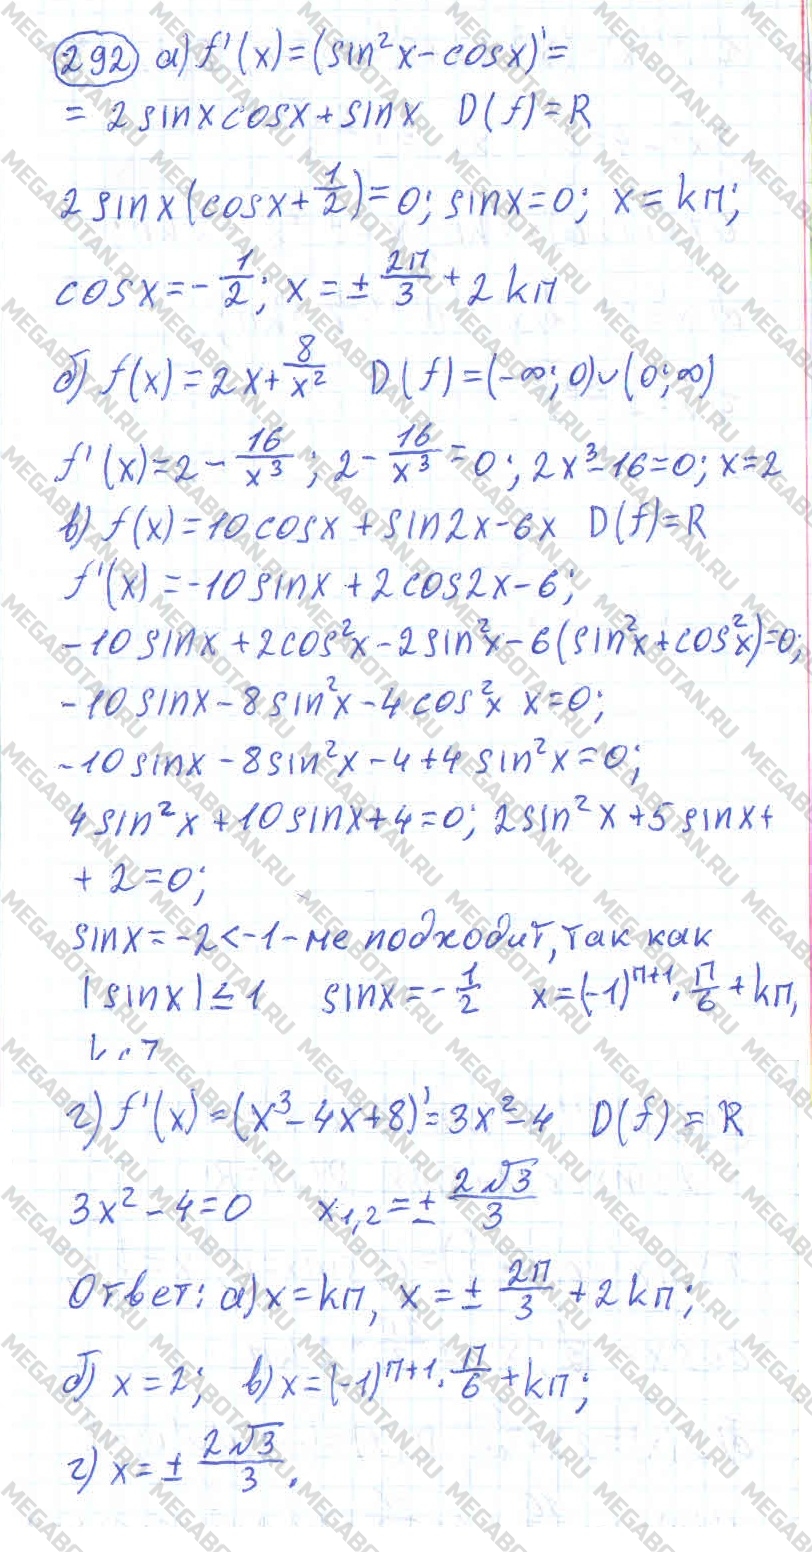 292 а) f'(x)=(sin²x-cosx)'=
= 2sinxcosx+sinx D(f)=R
2sinx(cosx+1/2)=0; sinx=0; x=kπ;
cosx=-1/2; x=±2π/3+2kπ
б) f(x)=2x+8/x² D(f)=(-∞;0)∪(0;∞)
f'(x)=2-16/x³; 2-16/x³=0; 2x³-16=0; x=2
в) f(x)=10cosx+sin2x-6x D(f)=R
f'(x)=-10sinx+2cos2x-6;
-10sinx+2cos²x-2sin²x-6(sin²x+cos²x)=0;
-10sinx-8sin²x-4cos²x x=0;
-10sinx-8sin²x-4+4sin²x=0;
4sin²x+10sinx+4=0; 2sin²x+5sinx+
+2=0;
sinx=-2<-1-не подходит, так как
|sinx|≤1 sinx=-1/2 x=(-1)ⁿ⁺¹·π/6+kπ,
г) f'(x)=(x³-4x+8)'=3x²-4 D(f)=R
3x²-4=0 x₁,₂=±2√3/3
Ответ: а) x=kπ, x=±2π/3+2kπ;
б) x=2; в) x=(-1)ⁿ⁺¹·π/6+kπ;
г) x=±2√3/3.
MEGABOTAN.RU